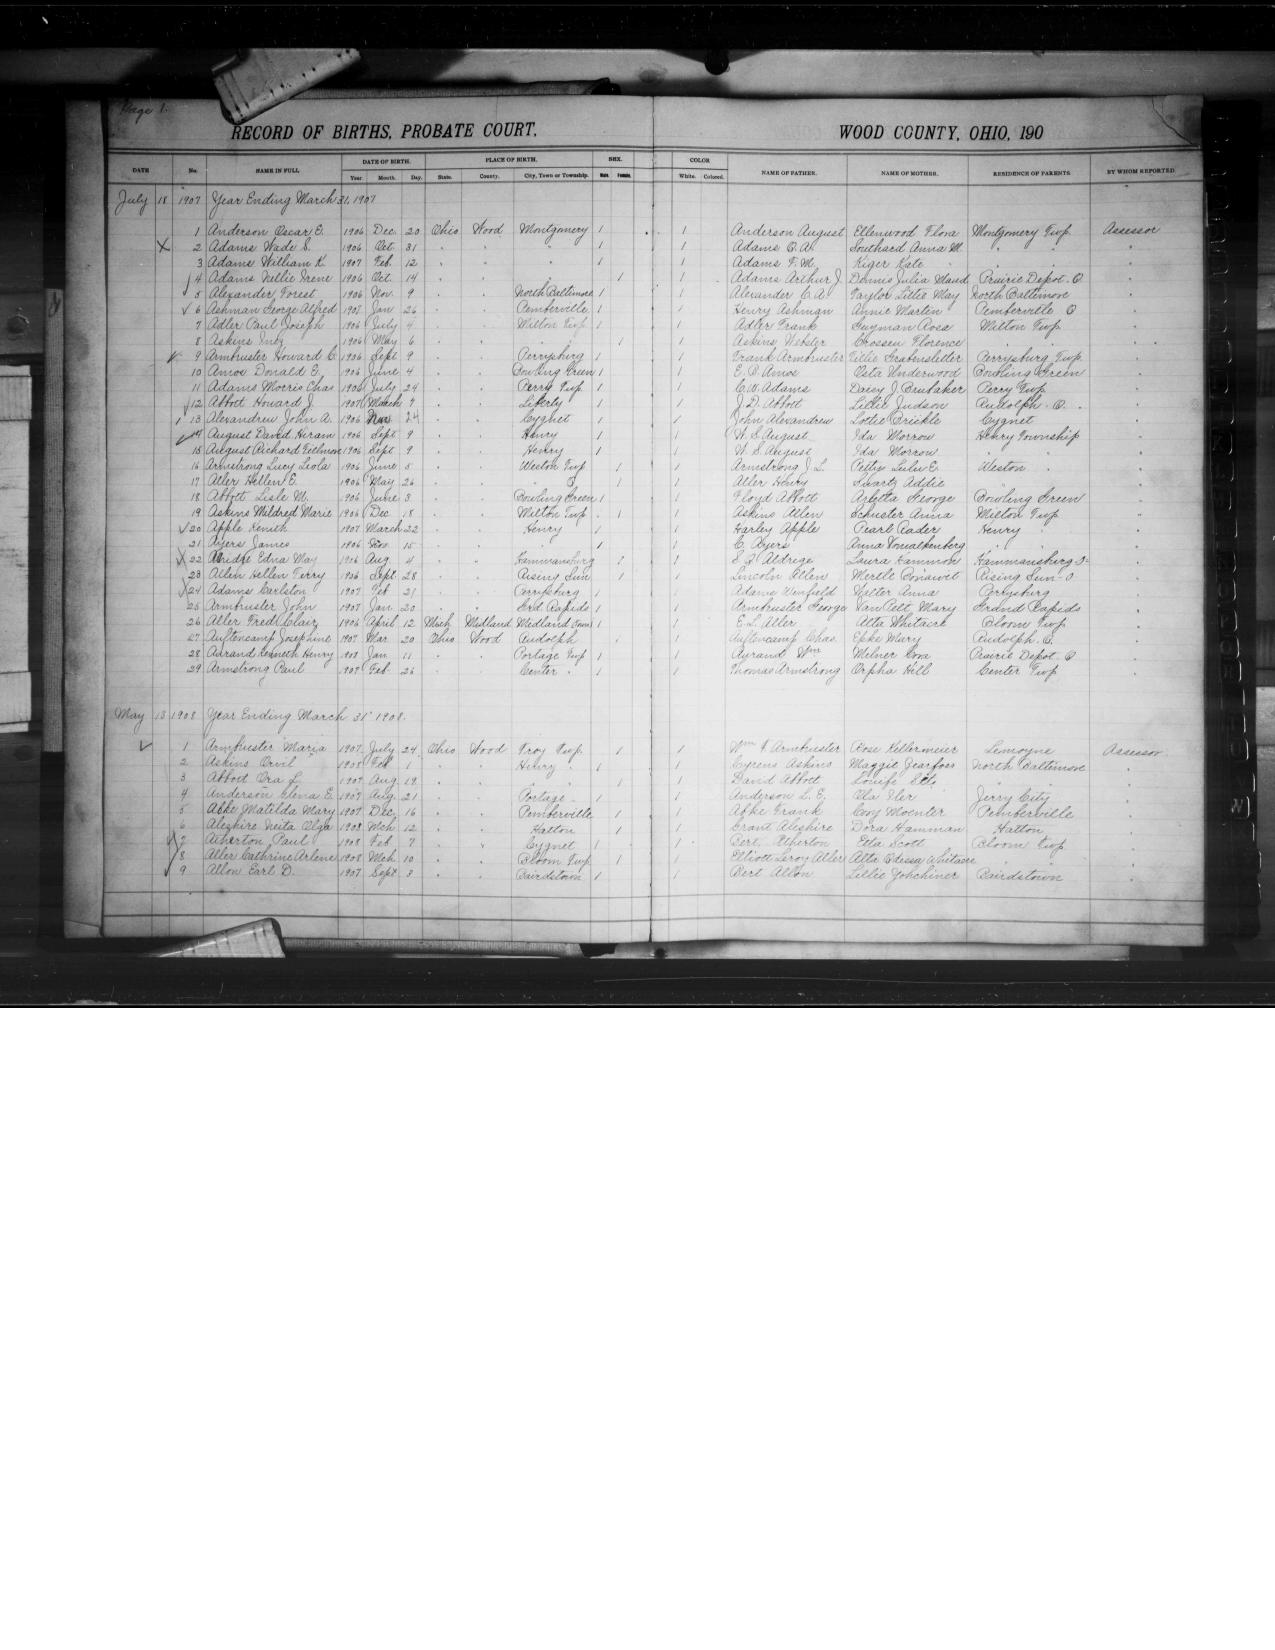 Page 1.
RECORD OF BIRTHS, PROBATE COURT, WOOD COUNTY, OHIO, 190
DATE No. NAME IN FULL DATE OF BIRTH. Year. Month. Day. PLACE OF BIRTH. State. County. City, Town or Township. SEX. Male. Female. COLOR White. Colored. NAME OF FATHER. NAME OF MOTHER. RESIDENCE OF PARENTS. BY WHOM REPORTED
July 18 1907 Year Ending March 31, 1907
1 Anderson Oscar E. 1906 Dec. 20 Ohio Wood Montgomery 1 1 Anderson August Ellenwood Flora Montgomery Twp. Assessor
2 Adams Wade S. 1906 Oct. 31 " " " 1 1 Adams O. A. Southard Anna M. " "
3 Adams William K. 1907 Feb. 12 " " " 1 1 Adams F. M. Kiger Kate " "
4 Adams Nellie Irene 1906 Oct. 14 " " " 1 1 Adams Arthur J. Dennis Julia Maud Prairie Depot. O "
5 Alexander Forest 1906 Nov. 9 " " North Baltimore 1 1 Alexander C. A. Taylor Littie May North Baltimore "
6 Ashman George Alfred 1907 Jan 26 " " Pemberville 1 1 Henry Ashman Annie Martin Pemberville O "
7 Adler Paul Joseph 1906 July 4 " " Milton Twp. 1 1 Adler Frank Guyman Rosa Milton Twp "
8 Askins 1906 May 6 " " " 1 1 Askins Webster Crossen Florence " " "
9 Armbruster Howard C. 1906 Sept 9 " " Perrysburg 1 1 Frank Armbruster Tillie Perrysburg Twp. "
10 Amos Donald E. 1906 June 4 " " Bowling Green 1 1 E. O. Amos Osta Underwood Bowling Green "
11 Adams Morris Chas 1906 July 24 " " Perry Twp. 1 1 C. W. Adams Daisy J. Brubaker Perry Twp "
12 Abbott Howard J. 1907 March 7 " " Liberty 1 1 J. D. Abbott Lillie Judson Rudolph. O. "
13 Alexandrew John A. 1906 Nov 24 " " Cygnet 1 1 John Alexandrew Lottie Brickle Cygnet "
14 August David Hiram 1906 Sept 9 " " Henry 1 1 W. S. August Ida Morrow Henry Township "
15 August Richard 1906 Sept. 9 " " Henry 1 1 W. S. August Ida Morrow " "
16 Armstrong Lucy Leola 1906 June 5 " " Weston Twp 1 1 Armstrong J. L. Pettys Lulu E. Weston "
17 Aller Hellen E. 1906 May 26 " " " 1 1 Aller Henry Swartz Addie " "
18 Abbott Lisle M. 1906 June 3 " " Bowling Green 1 1 Floyd Abbott Arletta George Bowling Green "
19 Askins Mildred Marie 1906 Dec 18 " " Milton Twp. 1 1 Askins Allen Schuster Anna Milton Twp "
20 Apple Kenith 1907 March 22 " " Henry 1 1 Harley Apple Pearl Rader Henry "
21 Ayers James 1906 Nov 15 " " " 1 1 C. Ayers Anna Vonvalkenberg " "
22 Edna May 1906 Aug. 4 " " Hammansburg 1 1 S. P. Aldrige Laura Hammon Hammansburg O "
23 Allen Hellen Terry 1906 Sept. 28 " " Rising Sun 1 1 Lincoln Allen Mertle Rising Sun - O "
24 Adams Carlston 1907 Feb 21 " " Perrysburg 1 1 Adams Winfield Walter Anna Perrysburg "
25 Armbruster John 1907 Jan. 20 " " Grd. Rapids 1 1 Armbruster George Van Pelt, Mary Grand Rapids "
26 Aller Fred Clair 1906 April 12 Mich Midland Midland (Town) 1 1 E. L. Aller Alta Whitacre Bloom Twp "
27 Auftencamp Josephine 1907 Mar. 20 Ohio Wood Rudolph 1 1 Auftencamp Chas. Epke Mary Rudolph. O. "
28 Aurand Kenneth Henry 1907 Jan. 11 " " Portage Twp 1 1 Aurand Wm Milner Cora Prairie Depot. O "
29 Armstrong Paul 1907 Feb. 26 " " Center " 1 1 Thomas Armstrong Orpha Hill Center Twp "
May 13 1908 Year Ending March 31st 1908.
1 Armbruster Maria 1907 July 24 Ohio Wood Troy Twp. 1 1 Wm F. Armbruster Rose Kellermeier Lemoyne Assessor
2 Askins Orvil 1908 Feb 1 " " Henry " 1 1 Cyrenus Askins Maggie Fearfoss North Baltimore "
3 Abbott Ora L. 1907 Aug. 19. " " " 1 1 David Abbott " "
4 Anderson Glena E. 1907 Aug. 21 " " Portage " 1 1 Anderson L. E. Ola Iler Jerry City "
5 Abke Matilda Mary 1907 Dec. 16 " " Pemberville 1 1 Abke Frank Moenter Pemberville "
6 Aleshire Neita Olga 1908 Mch 12 " " Hatton 1 1 Grant Aleshire Dora Hamman Hatton "
7 Atherton, Paul 1908 Feb 7 " " Cygnet 1 1 Bert. Atherton Etta Scott Bloom Twp "
8 Aller Cathrine Arlene 1908 Mch. 10 " " Bloom Twp. 1 1 Elliott Leroy Aller Alta Odessa Whitacre " "
9 Allon Earl D. 1907 Sept. 3 " " Bairdstown 1 1 Bert Allon Lillie Bairdstown "